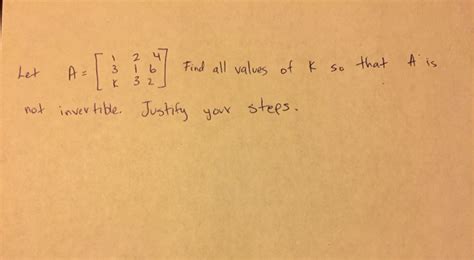 Let A = [ 1 2 4 ; 3 1 6 ; K 3 2 ] Find all values of K so that A is
not invertible. Justify your steps.